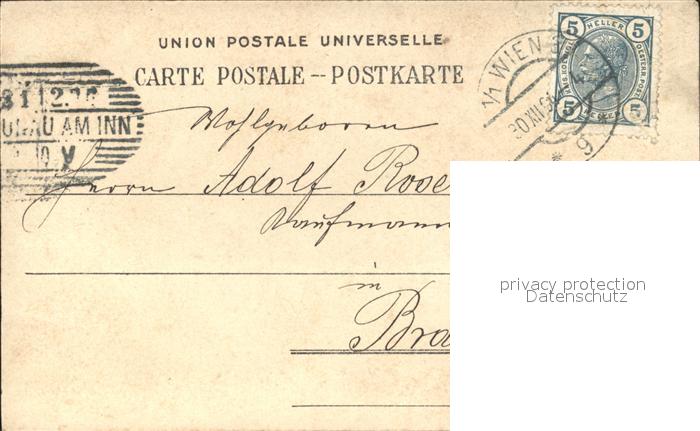 UNION POSTALE UNIVERSELLE
CARTE POSTALE -- POSTKARTE
5 HELLER 5
5 5
1/1 WIEN
30 XII
9
31 12
AU AM INN
10 V
Wohlgeboren
Herrn Adolf Rose
Kaufmann
in
Bra
privacy protection
Datenschutz